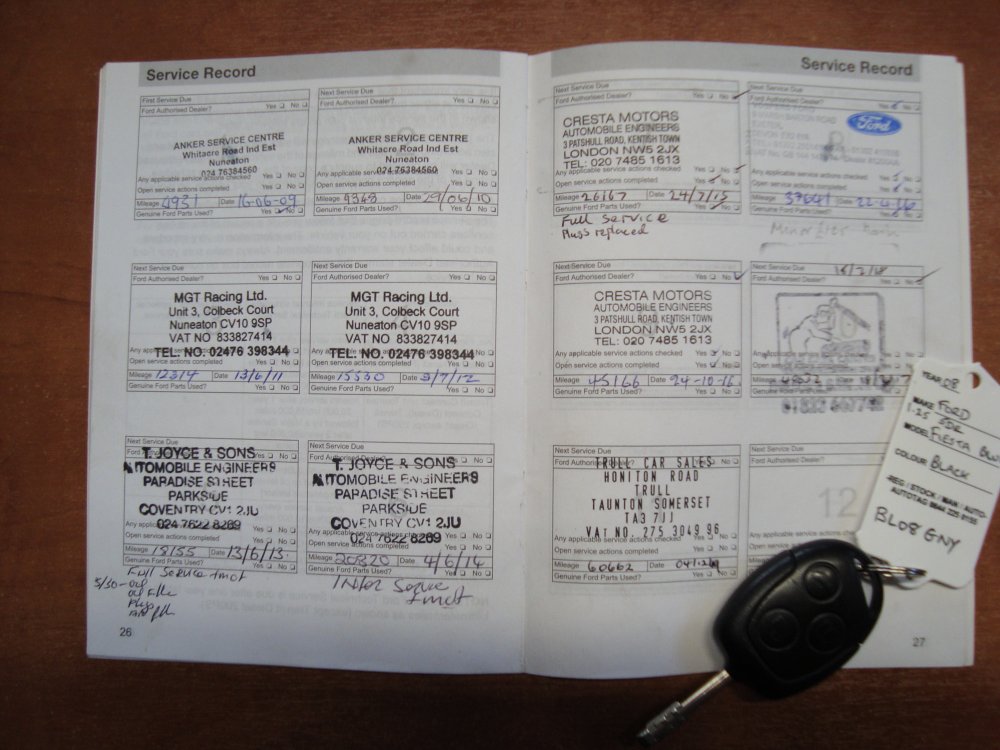 Service Record
First Service Due
Ford Authorised Dealer? Yes No
ANKER SERVICE CENTRE
Whitacre Road Ind Est
Nuneaton
024 76384560
Any applicable service actions checked Yes No
Open service actions completed Yes No
Mileage 4931 Date 16-06-09
Genuine Ford Parts Used? Yes No
Next Service Due
Ford Authorised Dealer? Yes No
ANKER SERVICE CENTRE
Whitacre Road Ind Est
Nuneaton
024 76384560
Any applicable service actions checked Yes No
Open service actions completed Yes No
Mileage Date 29/06/10
Genuine Ford Parts Used? Yes No
Next Service Due
Ford Authorised Dealer? Yes No
MGT Racing Ltd.
Unit 3, Colbeck Court
Nuneaton CV10 9SP
VAT NO 833827414
TEL: NO. 02476 398344
Open service actions completed Yes No
Mileage 12314 Date 13/6/11
Genuine Ford Parts Used? Yes No
Next Service Due
Ford Authorised Dealer? Yes No
MGT Racing Ltd.
Unit 3, Colbeck Court
Nuneaton CV10 9SP
VAT NO 833827414
TEL: NO. 02476 398344
Open service actions completed Yes No
Mileage 15530 Date 3/7/12
Genuine Ford Parts Used? Yes No
Next Service Due
T. JOYCE & SONS
AUTOMOBILE ENGINEERS
PARADISE STREET
PARKSIDE
COVENTRY CV1 2JU
024 7622 8269
Open service actions completed Yes No
Mileage 18155 Date 13/6/13
Genuine Ford Parts Used? Yes No
Full Service + mot
5/30-oil
oil filter
Plugs
Next Service Due
Ford Authorised Dealer? Yes No
T. JOYCE & SONS
AUTOMOBILE ENGINEERS
PARADISE STREET
PARKSIDE
COVENTRY CV1 2JU
024 7622 8269
Open service actions completed Yes No
Mileage 20820 Date 4/6/14
Genuine Ford Parts Used? Yes No
Inter Service
+ mot
26
Service Record
Next Service Due
Ford Authorised Dealer? Yes No
CRESTA MOTORS
AUTOMOBILE ENGINEERS
3 PATSHULL ROAD, KENTISH TOWN
LONDON NW5 2JX
TEL: 020 7485 1613
Any applicable service actions checked
Open service actions completed Yes No
Mileage 26167 Date 24/7/15
Genuine Ford Parts Used? Yes No
Full Service
Plugs replaced
Next Service Due
Ford Authorised Dealer? Yes No
Ford
Open service actions completed Yes No
Mileage 37641 Date 22-4-16
Genuine Ford Parts Used? Yes No
Next Service Due
Ford Authorised Dealer? Yes No
CRESTA MOTORS
AUTOMOBILE ENGINEERS
3 PATSHULL ROAD, KENTISH TOWN
LONDON NW5 2JX
TEL: 020 7485 1613
Any applicable service actions checked Yes No
Open service actions completed Yes No
Mileage 45166 Date 24-10-16
Genuine Ford Parts Used? Yes No
Next Service Due
Ford Authorised Dealer? Yes No
Any applicable service actions checked Yes No
Open service actions completed Yes No
Mileage Date
Genuine Ford Parts Used? Yes No
Next Service Due
Ford Authorised Dealer? Yes No
TRULL CAR SALES
HONITON ROAD
TRULL
TAUNTON SOMERSET
TA3 7JJ
VAT NO. 275 3049 96
Any applicable service actions checked Yes No
Open service actions completed Yes No
Mileage 60662 Date
Genuine Ford Parts Used? Yes No
Next Service Due
Ford Authorised Dealer?
12
Any applicable service
Open service actions completed
Mileage
Genuine Ford Parts Used?
27
YEAR 08
MAKE FORD
1.25 5DR
MODEL FIESTA
COLOUR BLACK
REG / STOCK / MAN / AUTO
AUTOTAG 0844 225 0155
BL08 GNY